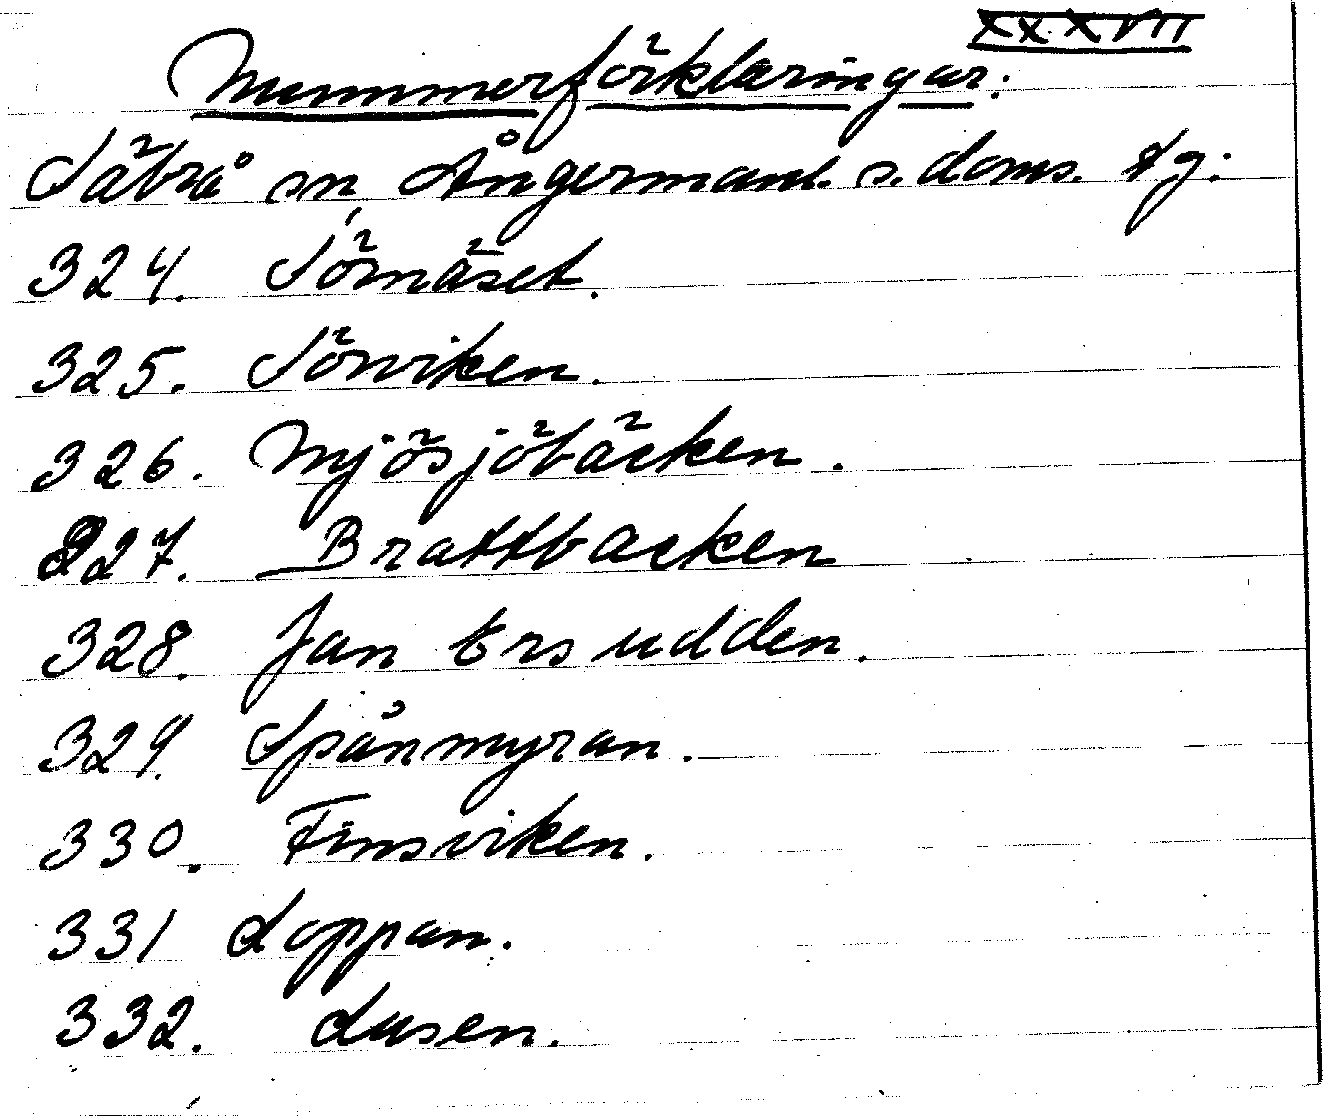 XXXVII
Nummerförklaringar:
Säbrå sn Ångermanl. s. doms. tg:
324. Sörnäset.
325. Sörviken.
326. Mjösjöbäcken.
327. Brattbacken
328. Jan Ers udden.
329. Spånmyran.
330. Finsviken.
331 Loppan.
332. Lusen.